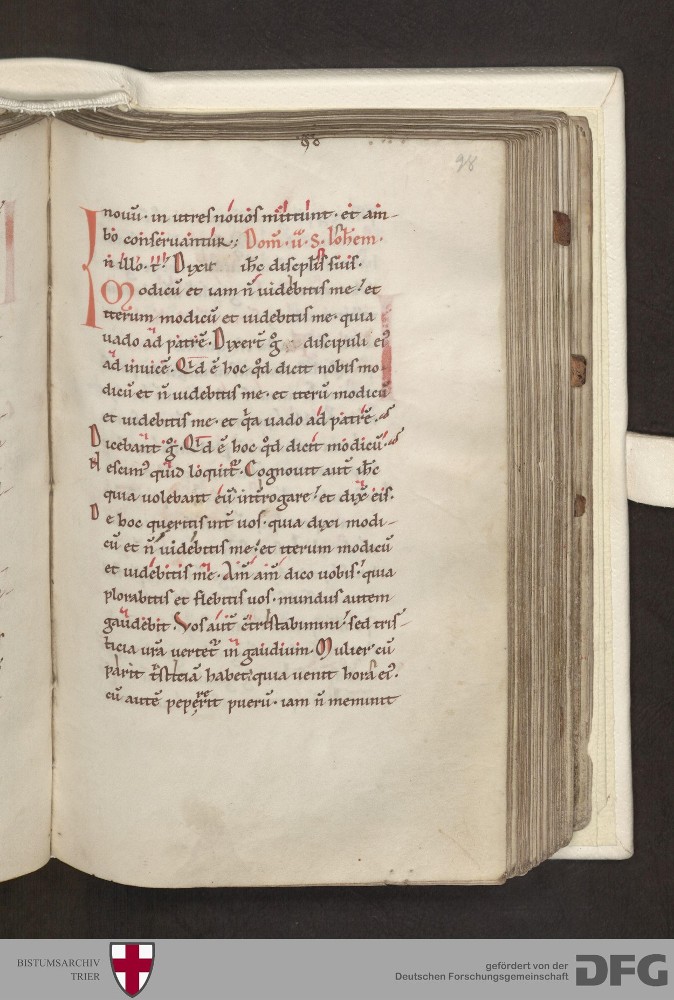 98
98
nouũ · in utres nouos mittunt · et am-
bo conseruantur ·: Dom̃ · ii̅ · S · Ioh̅em ·
In illo · t̃ · Dixit ih̅c discipl̅is suis ·
Modicũ et iam n̅ uidebitis me · et
iterum modicũ et uidebitis me · quia
uado ad patrẽ · Dixer̃t g̊ discipuli ei᾽
ad inuicẽ · Qıd ẽ hoc qd̃ dicit nobis mo-
dicũ et n̅ uidebitis me · et iterũ modicũ
et uidebitis me · et q̃a uado ad patrẽ ·
Dicebant g̊ · Qıd ẽ hoc qd̃ dicit modicũ ·
Nescim᾽ quid loquit᷑ · Cognouit aut̃ ih̅c
quia uolebant eũ interrogare · et dix̃ eis ·
De hoc queritis int̃ uos · quia dixi modi-
cũ et n̅ uidebitis me · et iterum modicũ
et uidebitis me · Am̅ am̅ dico uobis · quia
plorabitis et flebitis uos · mundus autem
gaudebit · Vos aut̃ c̃tristabimini · sed tris-
ticia ur̃a uertet᷑ in gaudium · Mulier cũ
parit tristiciã habet · quia uenit hora ei᾽ ·
cũ autẽ pepererit puerũ · iam n̅ meminit
BISTUMSARCHIV
TRIER
gefördert von der
Deutschen Forschungsgemeinschaft
DFG